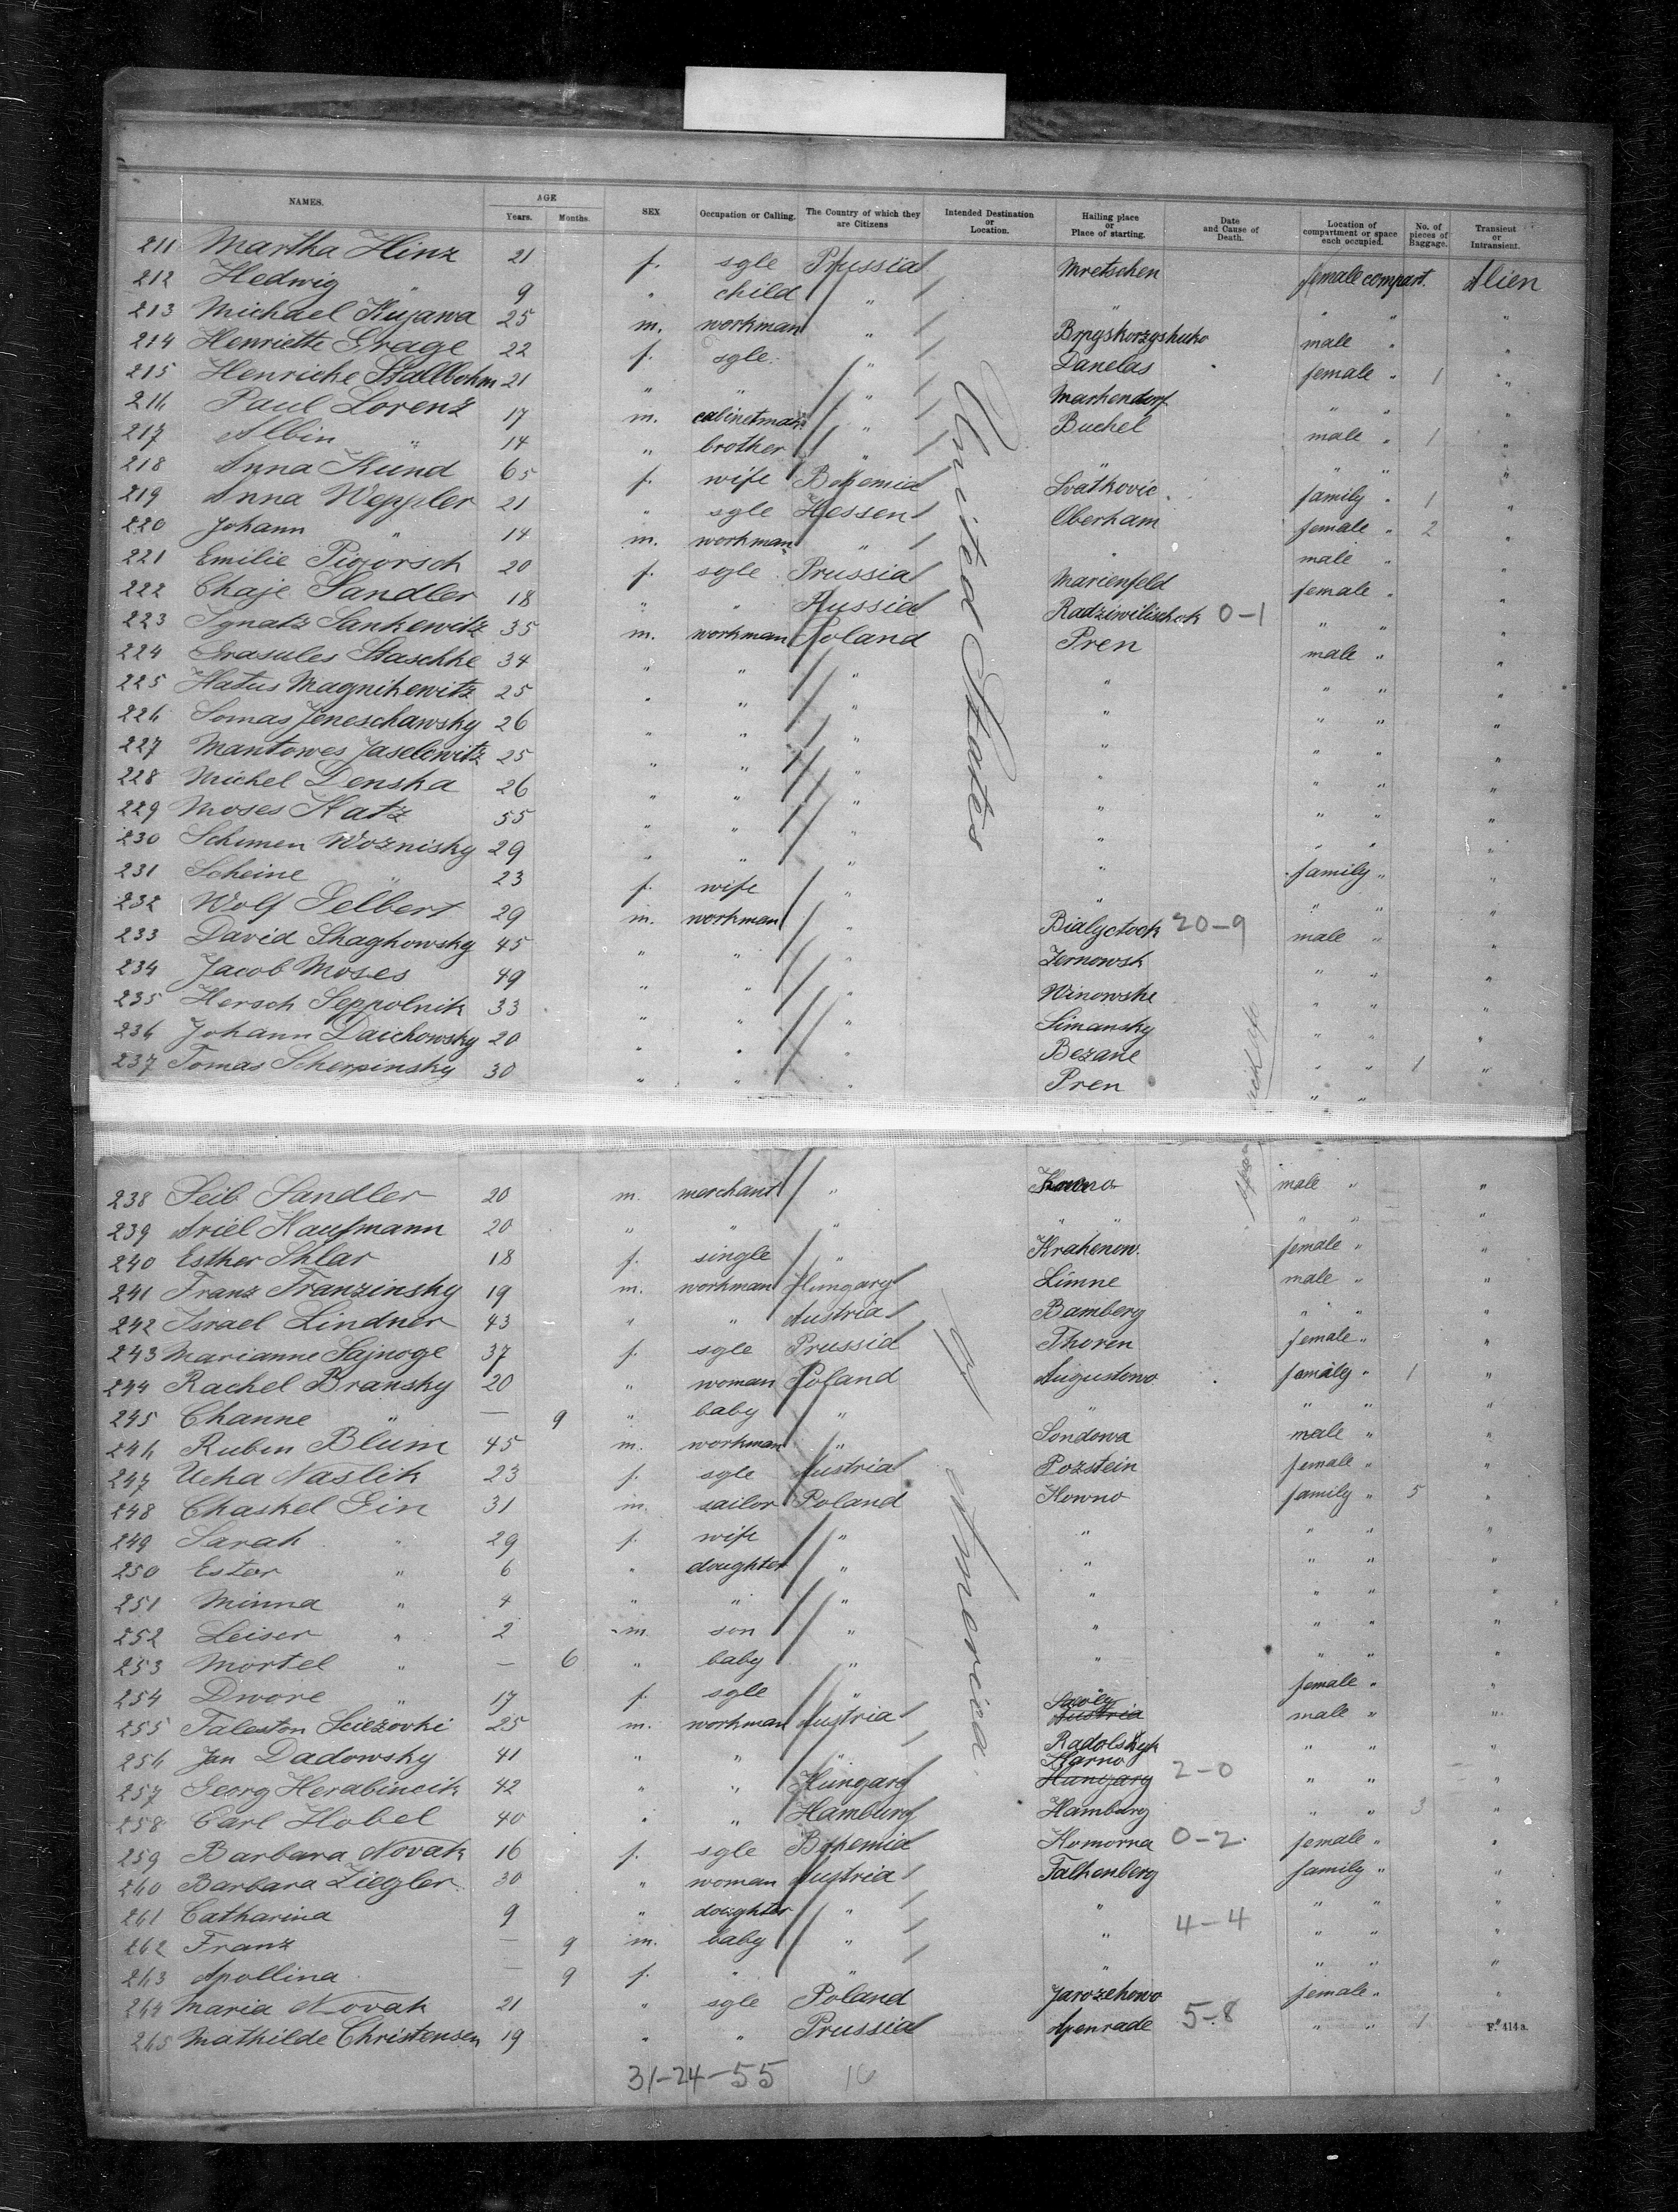 NAMES. AGE Years. Months. SEX Occupation or Calling. The Country of which they are Citizens Intended Destination or Location. Hailing place or Place of starting. Date and Cause of Death. Location of compartment or space each occupied. No. of pieces of Baggage. Transient or Intransient.
211 Martha Hinz 21 f. sgle Prussia Mretschen female compart. Alien
212 Hedwig " 9 " child " " " " "
213 Michael Kujawa 25 m. workman " male " "
214 Henriette Grage 22 f. sgle " Danelas female " 1 "
215 Henricke Stallbohm 21 " " " Markendorf " " "
216 Paul Lorenz 17 m. cabinetmaker " Buchel male " 1 "
217 Albin " 14 " brother " " " " "
218 Anna Kund 65 f. wife Bohemia Svatkovic family " 1 "
219 Anna Weppler 21 " sgle Hessen Oberham female " 2 "
220 Johann " 14 m. workman " " male " "
221 Emilie Pigorsch 20 f. sgle Prussia Marienfeld female " "
222 Chaje Sandler 18 " " Russia Radziwilischok 0-1 " " "
223 Ignatz Sankewitz 35 m. workman Poland Pren male " "
224 Grasules Staschke 34 " " " " " " "
225 Hatus Magnikewitz 25 " " " " " " "
226 Somas Jeneschawsky 26 " " " " " " "
227 Mantowes Jaselewitz 25 " " " " " " "
228 Michel Denska 26 " " " " " " "
229 Moses Katz 55 " " " " " " "
230 Schimen Woznisky 29 " " " " family " "
231 Scheine " 23 f. wife " " " " "
232 Wolf Gelbert 29 m. workman " Bialyctock 20-9 male " "
233 David Shaghowsky 45 " " " Zernowsk " " "
234 Jacob Moses 49 " " " Winowske " " "
235 Hersch Seppolnik 33 " " " Simansky " " "
236 Johann Daichowsky 20 " " " Bezane " " 1 "
237 Tomas Scherpinsky 30 " " " Pren " "
United States
238 Leib Sandler 20 m. merchant " Kowno male " "
239 Ariel Kaufmann 20 " " " " " " " "
240 Esther Shlar 18 f. single " Krakenow. female " "
241 Franz Franzinsky 19 m. workman Hungary Limne male " "
242 Israel Lindner 43 " " Austria Bamberg " " "
243 Marianne Sajnoge 37 f. sgle Prussia Thoren female " "
244 Rachel Bransky 20 " woman Poland Augustowo family " 1 "
245 Channe " — 9 " baby " " " " "
246 Ruben Blum 45 m. workman " Sondowa male " "
247 Ucha Naslik 23 f. sgle Austria Pozstein female " "
248 Chaskel Gin 31 m. sailor Poland Kowno family " 5 "
249 Sarah " 29 f. wife " " " " "
250 Ester " 6 " doughter " " " " "
251 Minna " 4 " " " " " " "
252 Leiser " 2 m. son " " " " "
253 Mortel " — 6 " baby " " " " "
254 Dwore " 17 f. sgle " female " "
255 Taleston Sciezovki 25 m. workman Austria Austria male " "
256 Jan Dadowsky 41 " " " " " "
257 Georg Herabincik 42 " " Hungary Harno Hungary 2-0 " " "
258 Carl Hobel 40 " " Hamburg Hamburg " " 3 "
259 Barbara Novak 16 f. sgle Bohemia Komorna 0-2 female " "
260 Barbara Ziegler 30 " woman Austria Falkenberg family " "
261 Catharina 9 " doughter " " " " "
262 Franz — 9 m. baby " " 4-4 " " "
263 Apollina — 9 f. " " " " " "
264 Maria Novak 21 " sgle Poland Jarozehowo female " "
265 Mathilde Christensen 19 " " Prussia Apenrade 5-8 " " 1 "
of America.
F. 414 a.
31-24-55 16